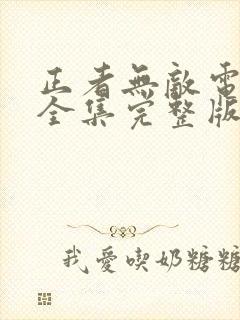 正者無敵電
全集完整版
我愛喫奶糖糖